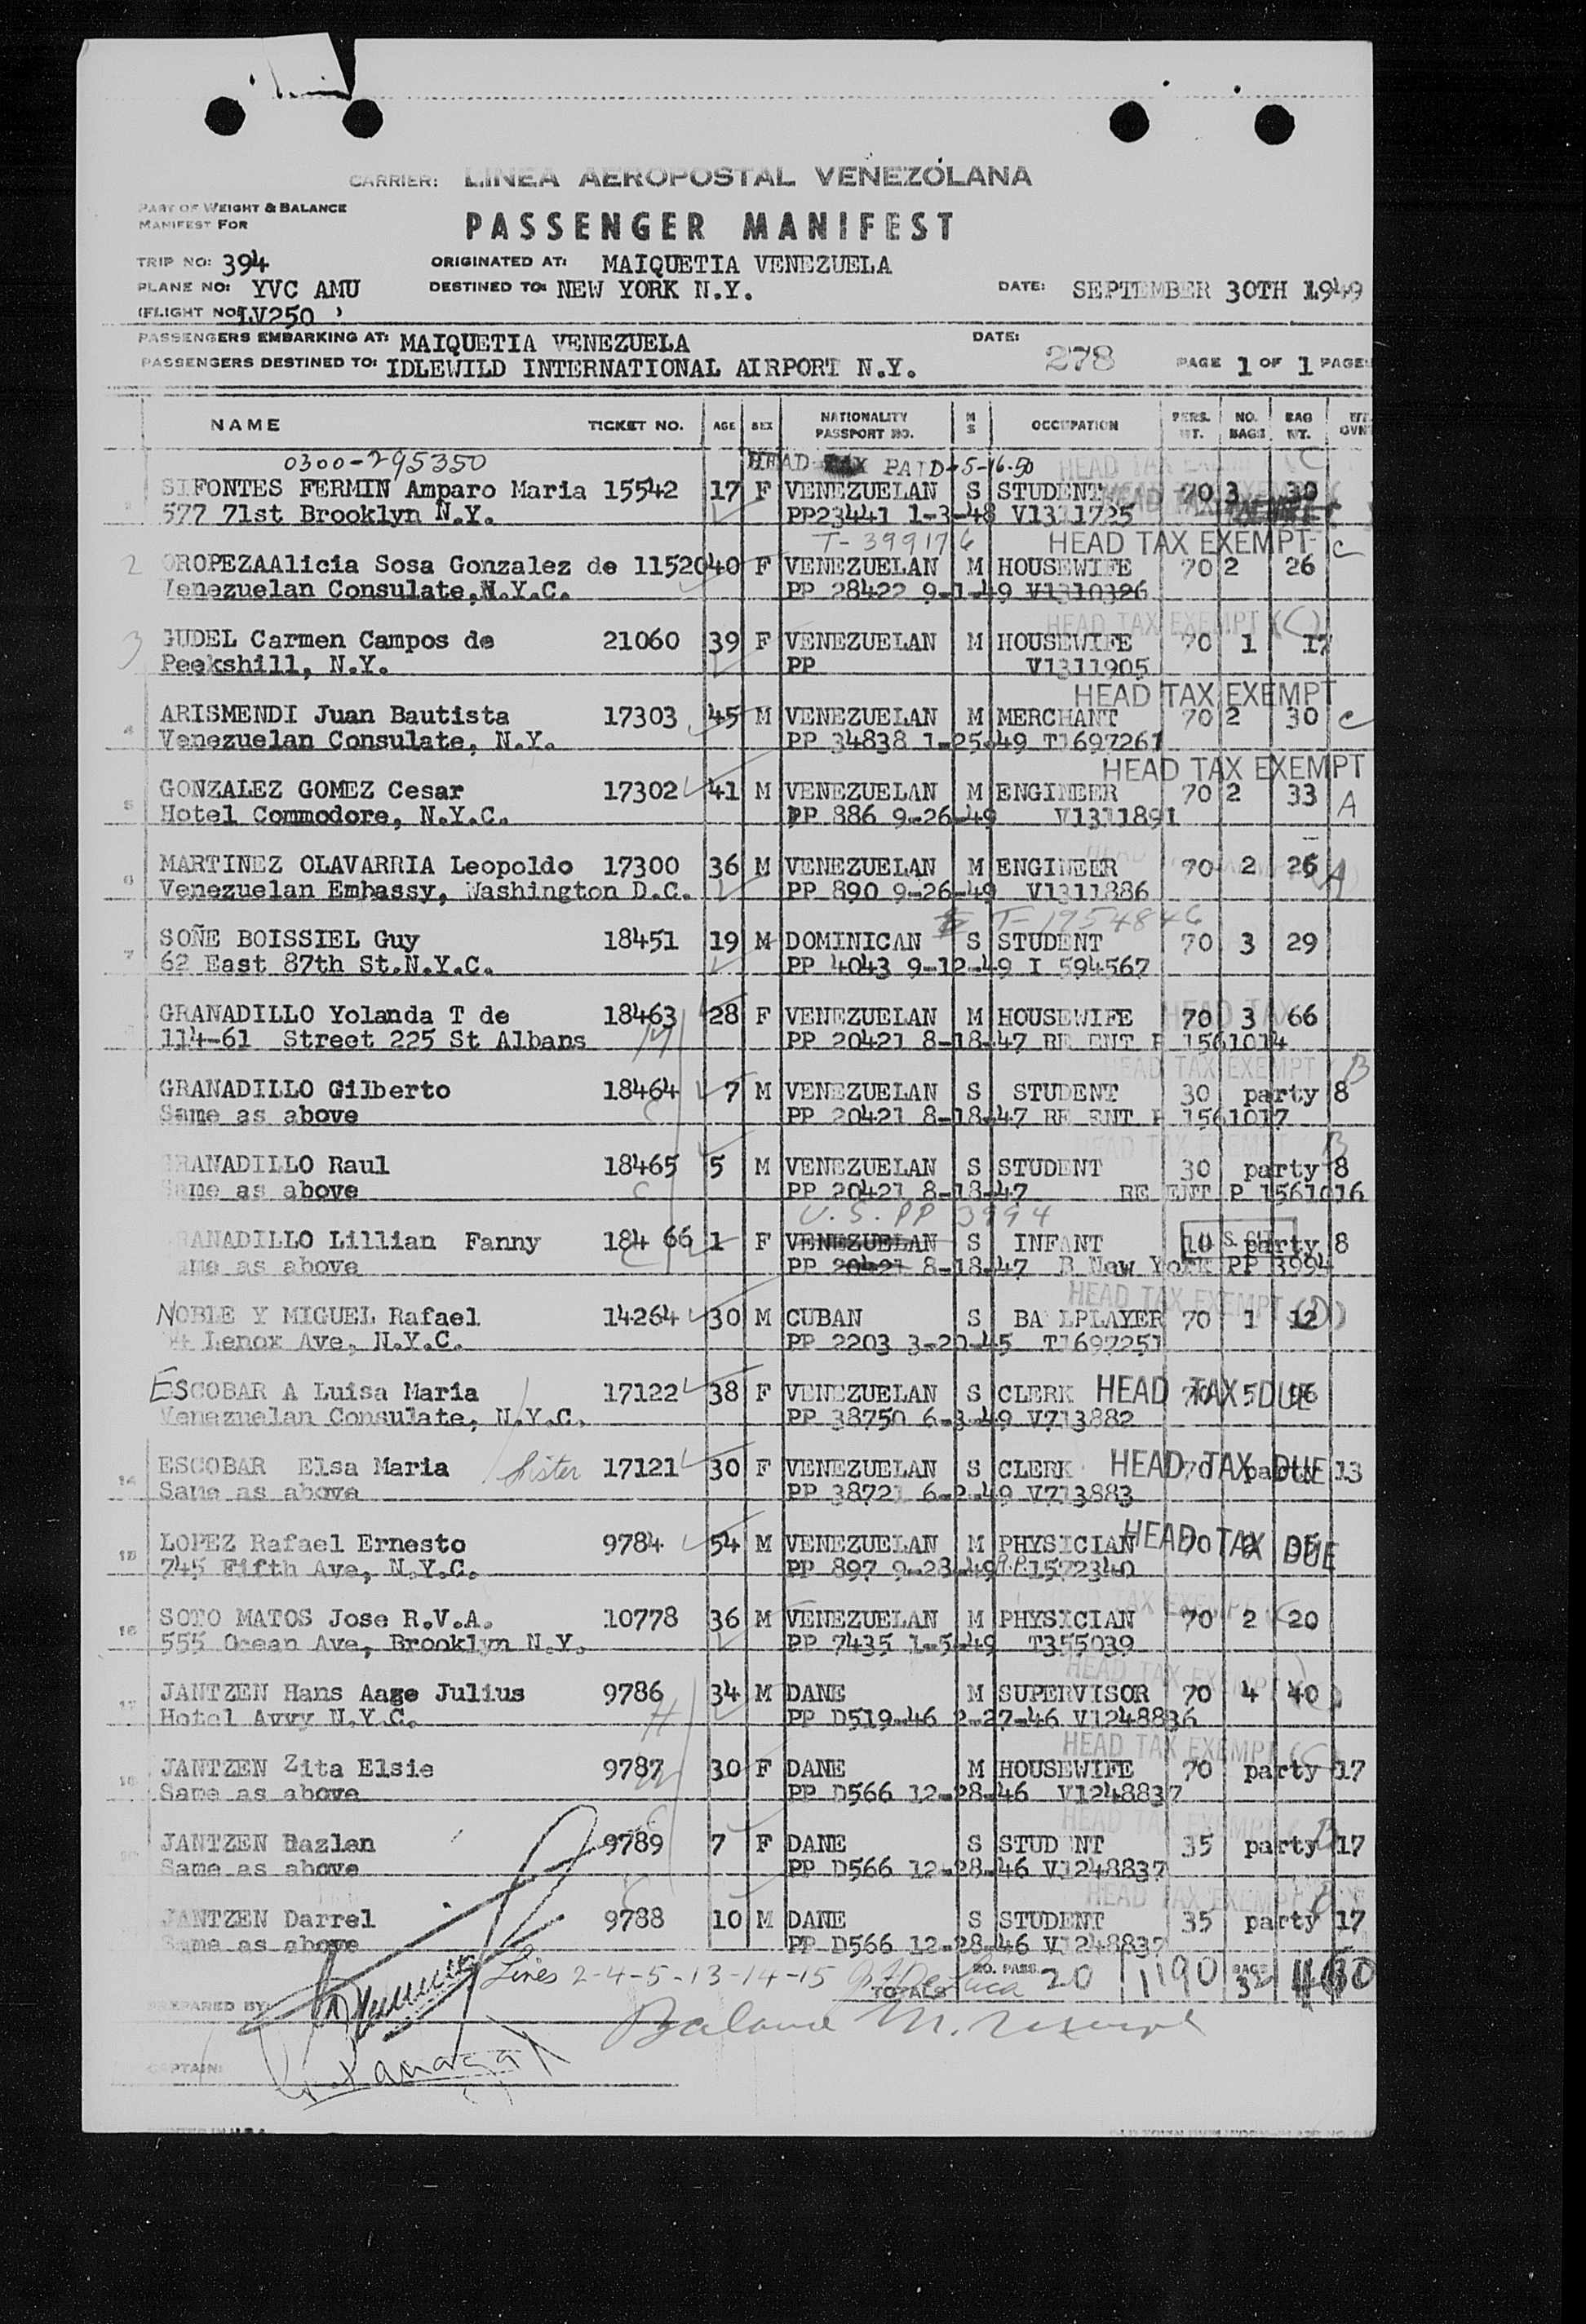 CARRIER: LINEA AEROPOSTAL VENEZOLANA
PART OF WEIGHT & BALANCE
MANIFEST FOR
PASSENGER MANIFEST
TRIP NO: 394 ORIGINATED AT: MAIQUETIA VENEZUELA
PLANE NO: YVC AMU DESTINED TO: NEW YORK N.Y. DATE: SEPTEMBER 30TH 1949
(FLIGHT NO LV250 )
PASSENGERS EMBARKING AT: MAIQUETIA VENEZUELA DATE:
278
PASSENGERS DESTINED TO: IDLEWILD INTERNATIONAL AIRPORT N.Y. PAGE 1 OF 1 PAGE
NAME TICKET NO. AGE SEX NATIONALITY PASSPORT NO. M S OCCUPATION PERS. WT. NO. BAGS BAG WT.
0300-295350 HEAD TAX PAID-5-16-50 HEAD TAX
SIFONTES FERMIN Amparo Maria 15542 17 F VENEZUELAN S STUDENT 70 3 30
577 71st Brooklyn N.Y. PP23441 1-3-48 V1311725
T-399176 HEAD TAX EXEMPT C
2 OROPEZAAlicia Sosa Gonzalez de 11520 40 F VENEZUELAN M HOUSEWIFE 70 2 26
Venezuelan Consulate,N.Y.C. PP 28422 9-1-49 V1310326
HEAD TAX EXEMPT (C)
3 GUDEL Carmen Campos de 21060 39 F VENEZUELAN M HOUSEWIFE 70 1 17
Peekshill, N.Y. PP V1311905
HEAD TAX EXEMPT
4 ARISMENDI Juan Bautista 17303 45 M VENEZUELAN M MERCHANT 70 2 30 C
Venezuelan Consulate, N.Y. PP 34838 1-25-49 T1697261
HEAD TAX EXEMPT
5 GONZALEZ GOMEZ Cesar 17302 41 M VENEZUELAN M ENGINEER 70 2 33 A
Hotel Commodore, N.Y.C. PP 886 9-26-49 V1311891
6 MARTINEZ OLAVARRIA Leopoldo 17300 36 M VENEZUELAN M ENGINEER 70 2 26 A
Venezuelan Embassy, Washington D.C. PP 890 9-26-49 V1311886
T-1954846
7 SOÑE BOISSIEL Guy 18451 19 M DOMINICAN S STUDENT 70 3 29
62 East 87th St.N.Y.C. PP 4043 9-12-49 I 594567
HEAD TAX
GRANADILLO Yolanda T de 18463 28 F VENEZUELAN M HOUSEWIFE 70 3 66
114-61 Street 225 St Albans M PP 20421 8-18-47 RE ENT P 1561014
HEAD TAX EXEMPT B
GRANADILLO Gilberto 18464 7 M VENEZUELAN S STUDENT 30 party 8
Same as above C PP 20421 8-18-47 RE ENT P 1561017
HEAD TAX EXEMPT B
GRANADILLO Raul 18465 5 M VENEZUELAN S STUDENT 30 party 8
Same as above C PP 20421 8-18-47 RE ENT P 1561016
U.S. PP 3994
GRANADILLO Lillian Fanny 184 66 1 F VENEZUELAN S INFANT 10 party 8
same as above C PP 20421 8-18-47 B New York PP 3994
HEAD TAX EXEMPT (D)
NOBLE Y MIGUEL Rafael 14264 30 M CUBAN S BA LPLAYER 70 1 12
Lenox Ave, N.Y.C. PP 2203 3-20-45 T1697251
ESCOBAR A Luisa Maria 17122 38 F VENEZUELAN S CLERK HEAD TAX DUE 70 5
Venezuelan Consulate, N.Y.C. PP 38750 6-3-49 V713882
14 ESCOBAR Elsa Maria Sister 17121 30 F VENEZUELAN S CLERK HEAD TAX DUE 70 party 13
Same as above PP 38721 6-2-49 V713883
15 LOPEZ Rafael Ernesto 9784 54 M VENEZUELAN M PHYSICIAN HEAD TAX DUE 70
745 Fifth Ave, N.Y.C. PP 897 9-23-49 R.P. 1572340
16 SOTO MATOS Jose R.V.A. 10778 36 M VENEZUELAN M PHYSICIAN 70 2 20
555 Ocean Ave, Brooklyn N.Y. PP 7435 1-5-49 T355039
HEAD TAX EXEMPT
17 JANTZEN Hans Aage Julius 9786 34 M DANE M SUPERVISOR 70 4 40
Hotel Avvy N.Y.C. H PP D519-46 2-27-46 V1248836
HEAD TAX EXEMPT (C)
JANTZEN Zita Elsie 9787 30 F DANE M HOUSEWIFE 70 party 17
Same as above PP D566 12-28-46 V1248837
HEAD TAX EXEMPT B
JANTZEN Dazlen 9789 7 F DANE S STUD NT 35 party 17
Same as above PP D566 12-28-46 V1248837
HEAD TAX EXEMPT B
JANTZEN Darrel 9788 10 M DANE S STUDENT 35 party 17
Same as above PP D566 12-28-46 V1248837
Lines 2-4-5-13-14-15 NO. PASS. 20 1190 BAGS 32
TOTALS
PREPARED BY:
Balance
CAPTAIN: